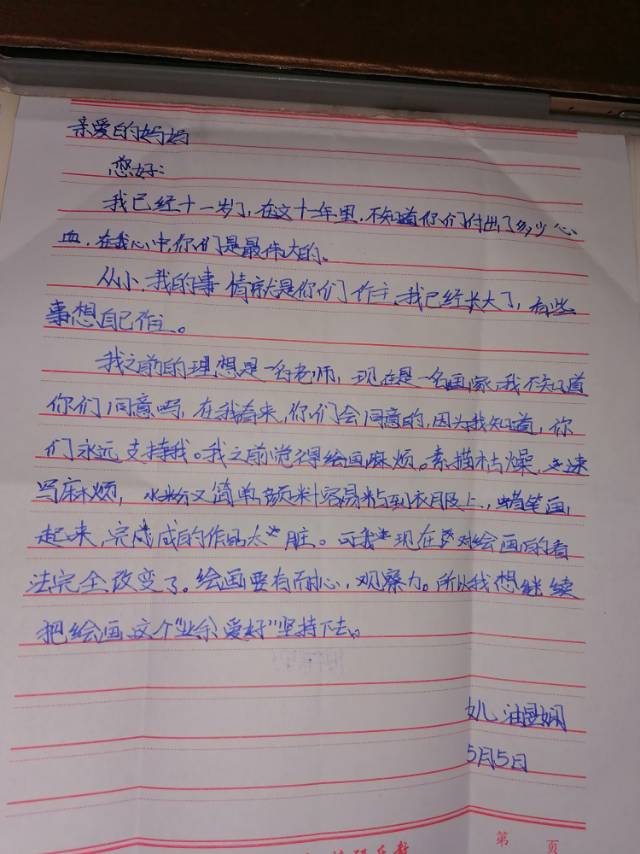 亲爱的妈妈
您好:
我已经十一岁了,在这十一年里,不知道你们付出了多少心
血,在我心中你们是最伟大的。
从小,我的事情就是你们作主,我已经长大了,有些
事想自己作主。
我之前的理想是一名老师,现在是一名画家,我不知道
你们同意吗,在我看来,你们会同意的,因为我知道,你
们永远支持我。我之前觉得绘画麻烦。素描枯燥,速
写麻烦,水粉又简单颜料容易粘到衣服上,蜡笔画
起来,完成的作品太脏。可我现在对绘画的看
法完全改变了。绘画要有耐心,观察力。所以我想继续
把绘画这个"业余爱好"坚持下去。
女儿
5月5日
第 页